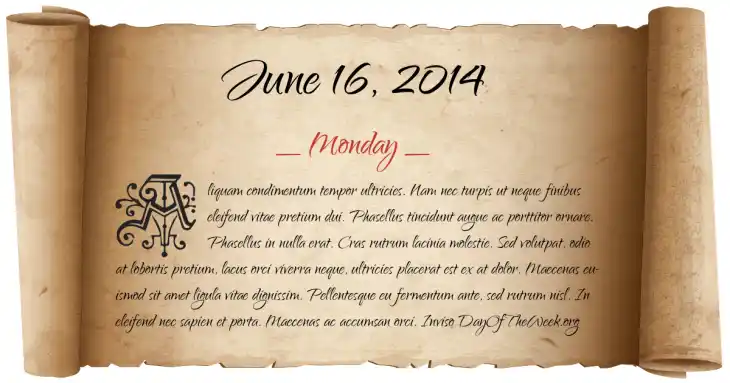 June 16, 2014
— Monday —
Aliquam condimentum tempor ultricies. Nam nec turpis ut neque finibus
eleifend vitae pretium dui. Phasellus tincidunt augue ac porttitor ornare.
Phasellus in nulla erat. Cras rutrum lacinia molestie. Sed volutpat, odio
at lobortis pretium, lacus orci viverra neque, ultricies placerat est ex at dolor. Maecenas eu-
ismod sit amet ligula vitae dignissim. Pellentesque eu fermentum ante, sed rutrum nisl. In
eleifend nec sapien et porta. Maecenas ac accumsan orci. Inviso DayOfTheWeek.org